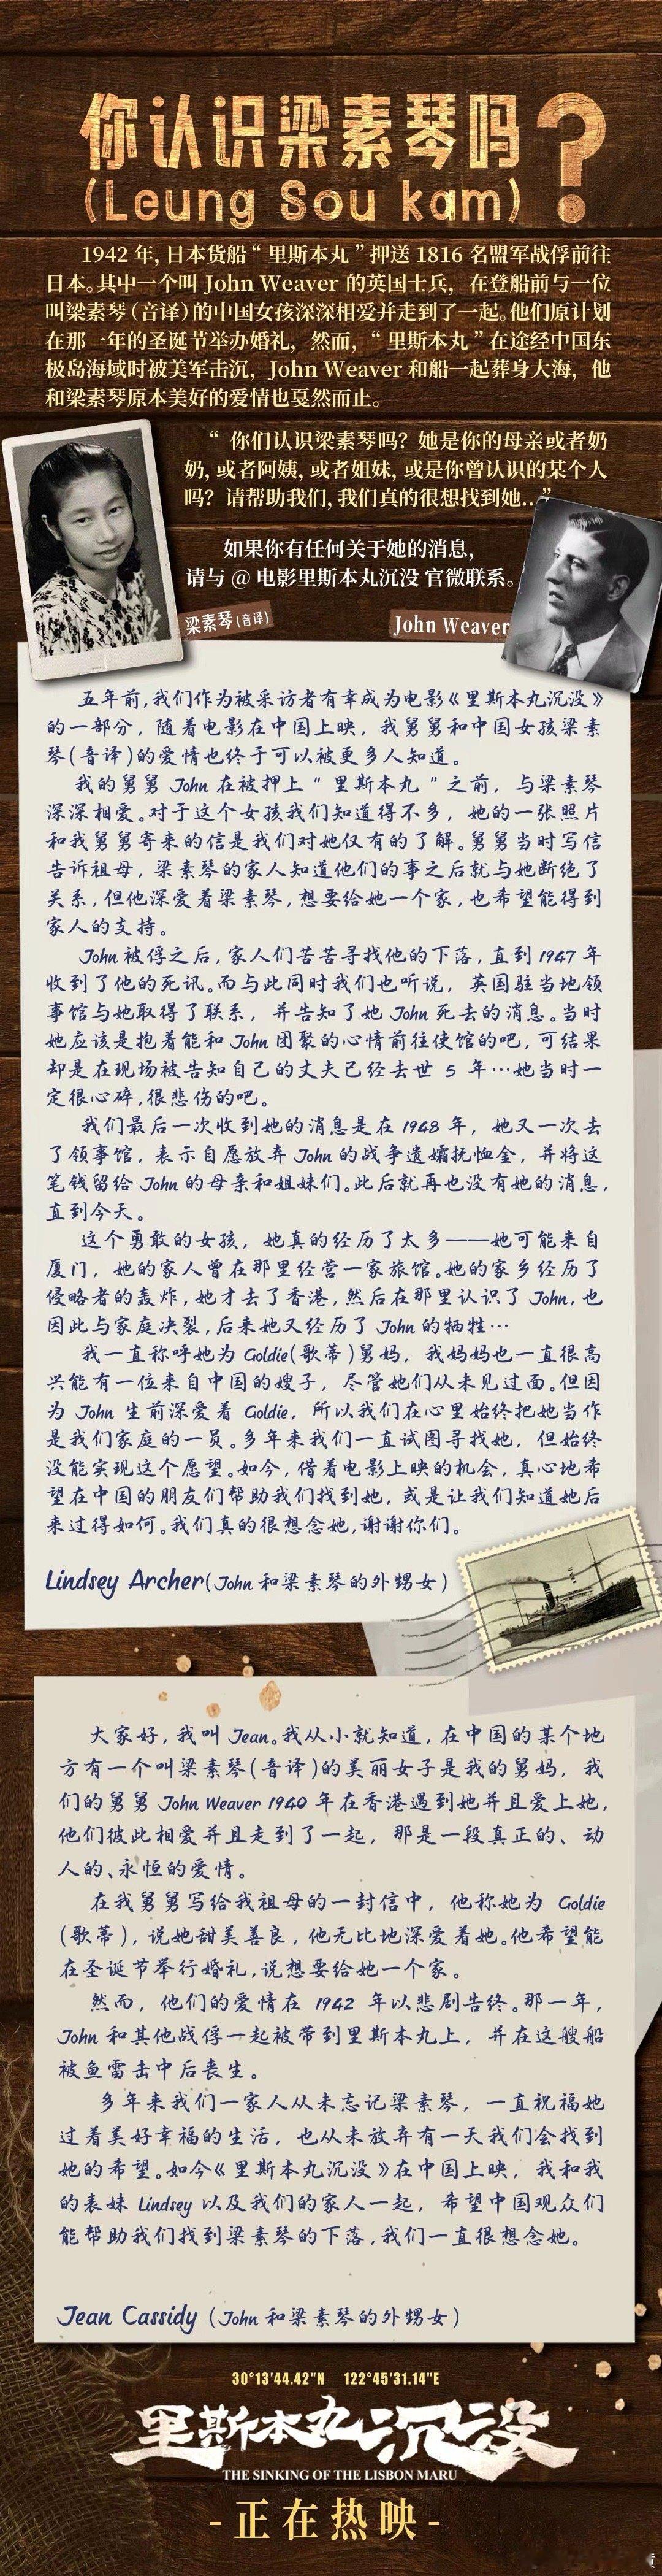 你认识梁素琴吗？
(Leung Sou kam)
1942 年, 日本货船“ 里斯本丸 ”押送 1816 名盟军战俘前往
日本。其中一个叫 John Weaver 的英国士兵，在登船前与一位
叫梁素琴（音译）的中国女孩深深相爱并走到了一起。他们原计划
在那一年的圣诞节举办婚礼，然而，“ 里斯本丸 ”在途经中国东
极岛海域时被美军击沉，John Weaver 和船一起葬身大海，他
和梁素琴原本美好的爱情也戛然而止。
“ 你们认识梁素琴吗？她是你的母亲或者奶
奶, 或者阿姨, 或者姐妹, 或是你曾认识的某个人
吗？请帮助我们, 我们真的很想找到她...”
如果你有任何关于她的消息,
请与 @ 电影里斯本丸沉没 官微联系。
梁素琴(音译)
John Weaver
五年前,我们作为被采访者有幸成为电影《里斯本丸沉没》
的一部分，随着电影在中国上映，我舅舅和中国女孩梁素
琴(音译)的爱情也终于可以被更多人知道。
我的舅舅 John 在被押上“ 里斯本丸 ”之前，与梁素琴
深深相爱。对于这个女孩我们知道得不多，她的一张照片
和我舅舅寄来的信是我们对她仅有的了解。舅舅当时写信
告诉祖母，梁素琴的家人知道他们的事之后就与她断绝了
关系,但他深爱着梁素琴,想要给她一个家,也希望能得到
家人的支持。
John 被俘之后,家人们苦苦寻找他的下落,直到 1947 年
收到了他的死讯。而与此同时我们也听说，英国驻当地领
事馆与她取得了联系，并告知了她 John 死去的消息。当时
她应该是抱着能和 John 团聚的心情前往使馆的吧，可结果
却是在现场被告知自己的丈夫已经去世 5 年…她当时一
定很心碎,很悲伤的吧。
我们最后一次收到她的消息是在 1948 年，她又一次去
了领事馆，表示自愿放弃 John 的战争遗孀抚恤金，并将这
笔钱留给 John 的母亲和姐妹们。此后就再也没有她的消息,
直到今天。
这个勇敢的女孩，她真的经历了太多——她可能来自
厦门，她的家人曾在那里经营一家旅馆。她的家乡经历了
侵略者的轰炸,她才去了香港,然后在那里认识了 John,也
因此与家庭决裂,后来她又经历了 John 的牺牲…
我一直称呼她为 Goldie(歌蒂)舅妈，我妈妈也一直很高
兴能有一位来自中国的嫂子，尽管她们从未见过面。但因
为 John 生前深爱着 Goldie，所以我们在心里始终把她当作
是我们家庭的一员。多年来我们一直试图寻找她，但始终
没能实现这个愿望。如今,借着电影上映的机会,真心地希
望在中国的朋友们帮助我们找到她，或是让我们知道她后
来过得如何。我们真的很想念她,谢谢你们。
Lindsey Archer(John 和梁素琴的外甥女)
大家好，我叫 Jean。我从小就知道，在中国的某个地
方有一个叫梁素琴(音译)的美丽女子是我的舅妈，我
们的舅舅 John Weaver 1940 年在香港遇到她并且爱上她,
他们彼此相爱并且走到了一起，那是一段真正的、动
人的、永恒的爱情。
在我舅舅写给我祖母的一封信中，他称她为 Goldie
(歌蒂)，说她甜美善良，他无比地深爱着她。他希望能
在圣诞节举行婚礼,说想要给她一个家。
然而，他们的爱情在 1942 年以悲剧告终。那一年，
John 和其他战俘一起被带到里斯本丸上，并在这艘船
被鱼雷击中后丧生。
多年来我们一家人从未忘记梁素琴，一直祝福她
过着美好幸福的生活，也从未放弃有一天我们会找到
她的希望。如今《里斯本丸沉没》在中国上映，我和我
的表妹 Lindsey 以及我们的家人一起，希望中国观众们
能帮助我们找到梁素琴的下落,我们一直很想念她。
Jean Cassidy (John 和梁素琴的外甥女)
30°13'44.42"N 122°45'31.14"E
里斯本丸沉没
THE SINKING OF THE LISBON MARU
-正在热映-